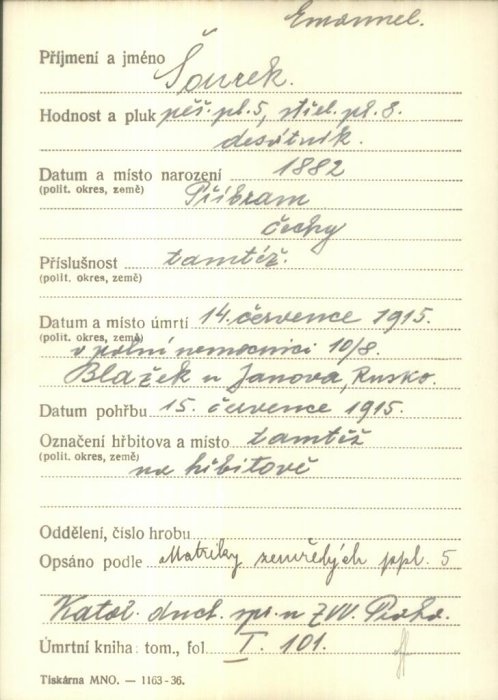 Emannel.
Příjmení a jméno
Šourek.
Hodnost a pluk pěš. pl. 5, střel. pl. 8.
desátník.
Datum a místo narození 1882
(polit. okres, země) Příbram
čechy
Příslušnost tamtéž.
(polit. okres, země)
Datum a místo úmrtí 14. července 1915.
(polit. okres, země)
v polní nemocnici 10/8.
Blažek u Janova, Rusko.
Datum pohřbu 15. července 1915.
Označení hřbitova a místo tamtéž
(polit. okres, země) na hřbitově
Oddělení, číslo hrobu
Opsáno podle Matriky zemřelých ppl. 5
Katol. duch. spr. u ZVV. Praha.
Úmrtní kniha: tom., fol. I. 101.
Tiskárna MNO. — 1163-36.